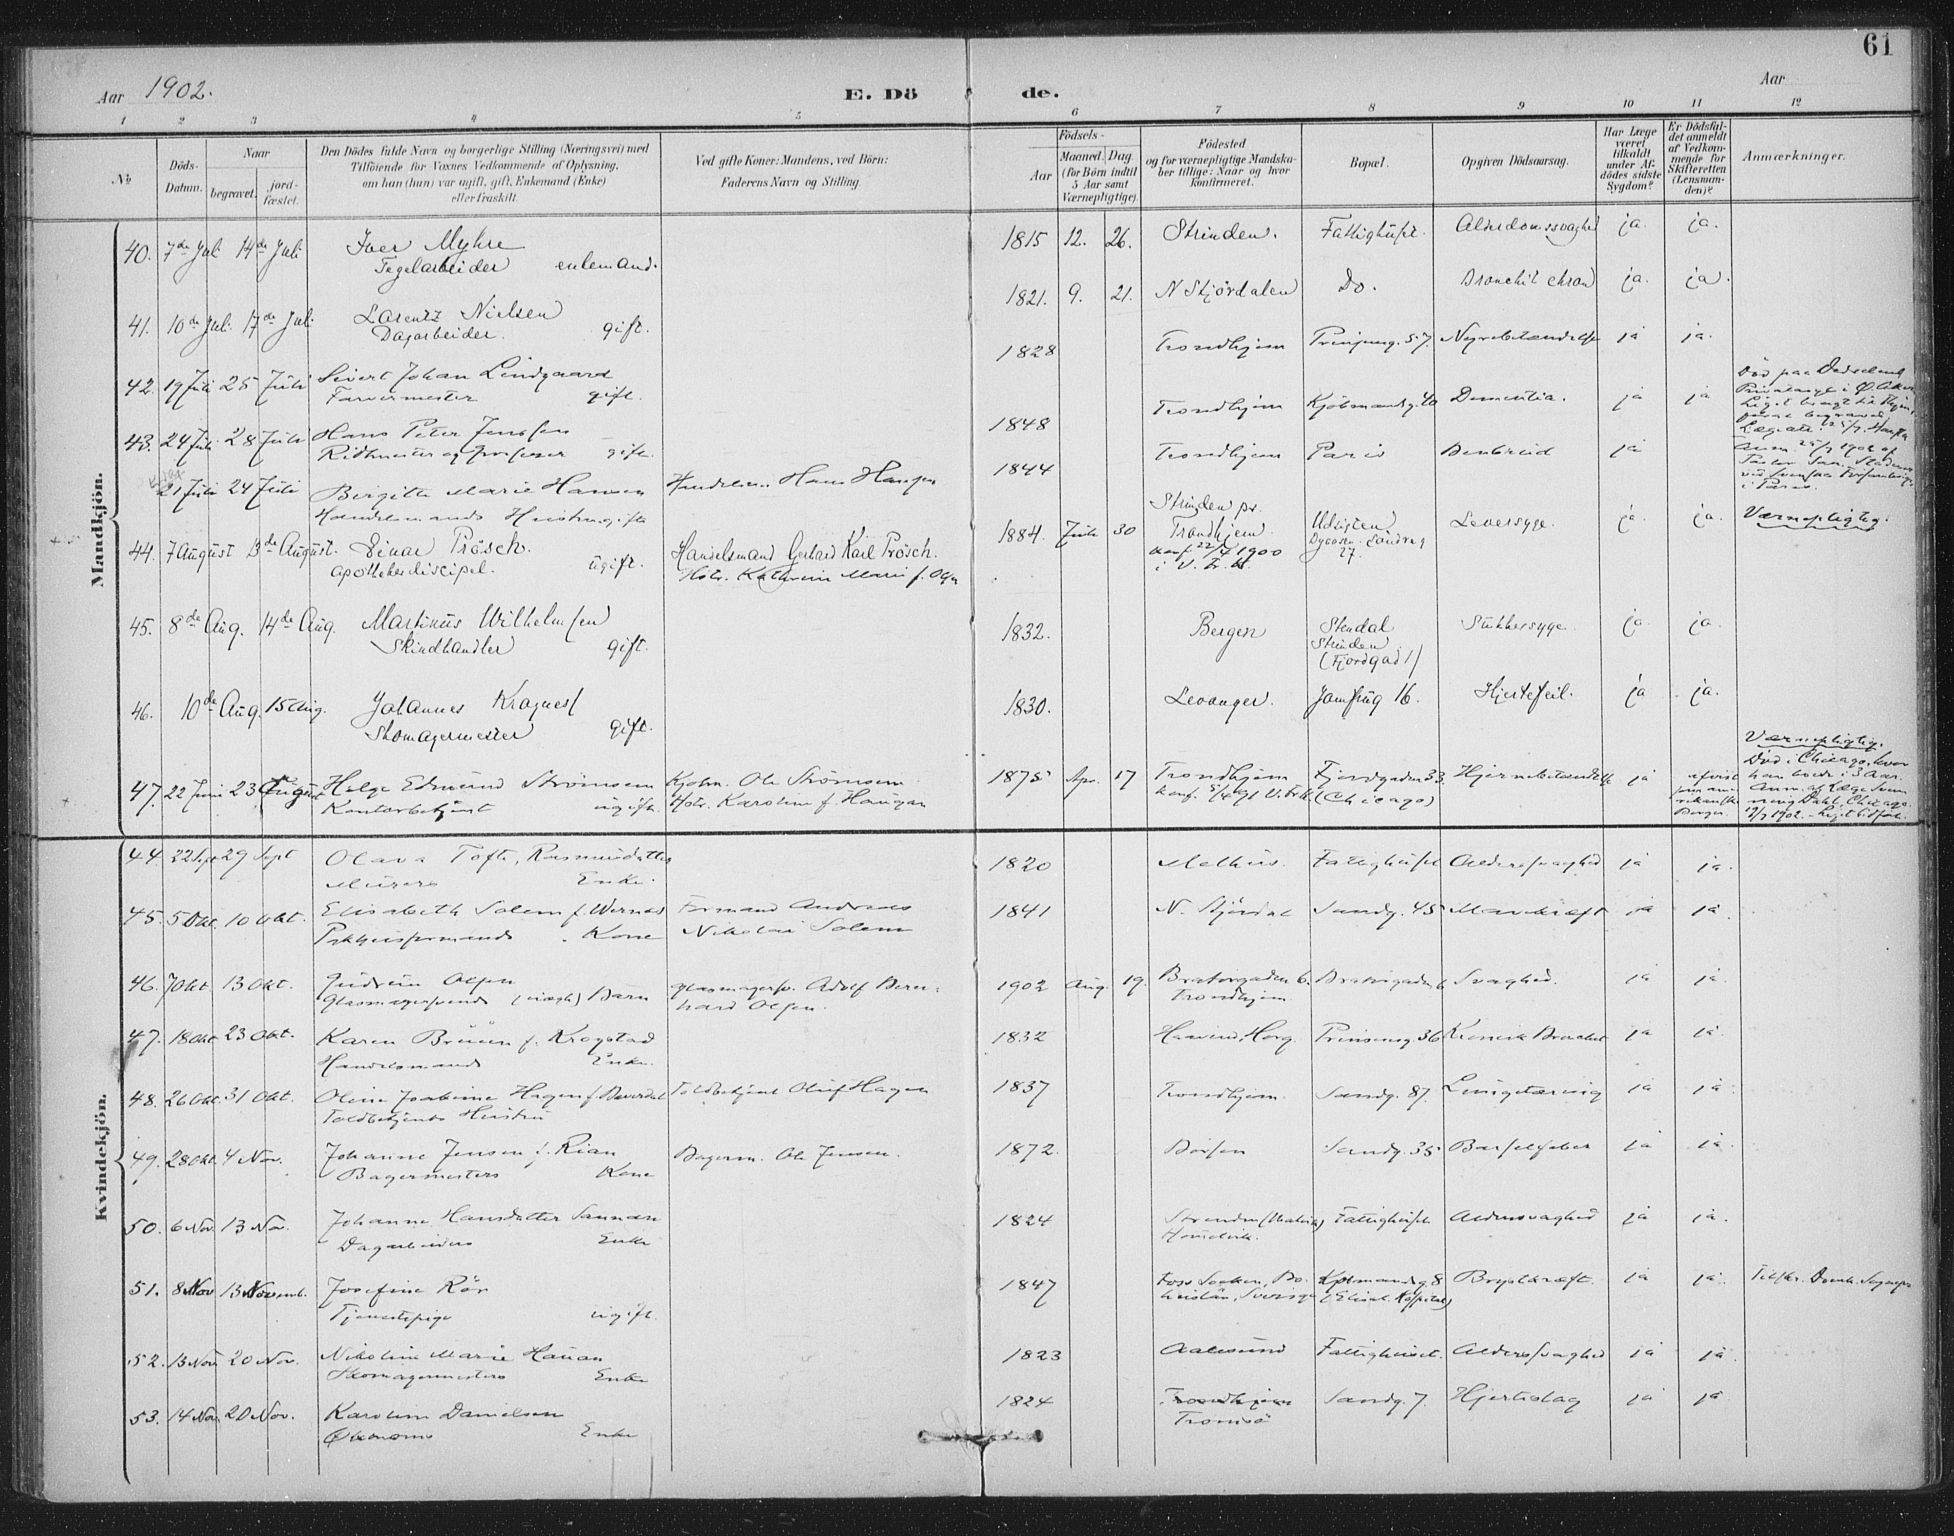 61
Aar 1902.
E. Döde.
Aar
1 2 3 4 5 6 7 8 9 10 11 12
№
Döds-Datum.
Naar
begravet.
jordfæstet.
Den Dödes fulde Navn og borgerlige Stilling (Næringsvei) med
Tilföiende for Voxnes Vedkommende af Oplysning,
om han (hun) var ugift, gift, Enkemand (Enke)
eller fraskilt.
Ved gifte Koner: Mandens, ved Börn:
Faderens Navn og Stilling.
Födsels-
Aar
Maaned. Dag.
(for Börn indtil
5 Aar samt
Værnepligtige).
Födested
og for værnepligtige Mandska-
ber tillige: Naar og hvor
konfirmeret.
Bopæl.
Opgiven Dödsaarsag.
Har Læge
været
tilkaldt
under Af-
dödes sidste
Sygdom?
Er Dödsfal-
det anmeldt
af Vedkom-
mende for
Skifteretten
(Lensman-
den)?
Anmærkninger.
Mandkjön.
40. 7de Juli 14de Juli Iver Myhre 1815 12. 26. Strinden. Fattighuset. Alderdomssvaghed ja. ja.
Tegelarbeider enkemand.
41. 10de Juli. 17de Juli Larentz Nielsen 1821. 9. 21. N Stjørdalen Do. Bronchit chron ja. ja.
Dagarbeider. gift.
42. 19 Juli 25 Juli Sivert Johan Lindgaard 1828 Trondhjem Prinsensg. 57. Nyrebetændelse ja ja.
Farvermester gift.
43. 24 Juli 28 Juli Hans Peter Jenssen 1848 Trondhjem Kjøbmandsg. 40 Dementia. ja ja
Ridtmester og gift.
21 Juli 24 Juli Birgitte Marie Hansen Hans Hansen 1844 Trondhjem Paris Benbrud ja
Handelsmands Hustru gift
44. 7 August 13de August. Einar Prösch. Handelsmand Gerhard Karl Prösch. 1884. Juli 30 Strinden pr. Trondhjem. Udsigten Leversyge. ja. ja. Værnepligtig.
apothekerdiscipel. ugift. Hstr. Kathrine Marie f. Olsen konf. 22/4 1900 27.
i V. Fr. K.
45. 8de Aug. 14de Aug. Martinus Wilhelmsen 1832. Bergen Stendal Sukkersyge. ja. ja.
Skindhandler gift. Strinden
(Fjordgad 1)
46. 10de Aug. 15 Aug. Johannes Kragnes 1830. Levanger. Jomfrug 16. Hjertefeil. ja ja.
Skomagermester gift.
47. 22 Juni 23 August Helge Edmund Strømsem Kjøbm. Ole Strømsem 1875 Apr. 17 Trondhjem Fjordgaden 33 Hjernebetændelse ja
Kontorbetjent ugift. Hstr. Karoline f. Haugan (Chicago)
Værnepligtig.
Død i Chicago, hvor
han boede i 3 Aar.
Kvindekjön.
44. 22 Sept 29 Sept Olava Tofte, Rasmusdatter 1820 Melhus. Fattighuset Alderssvaghed ja ja.
Murers Enke.
45. 5 Okt. 10 Okt. Elisabeth Solem f. Wernes Formand Andreas 1841 N. Stjørdal Sandg. 45 Mavekræft ja ja.
Pakhusformands Kone Nikolai Solem
46. 7 Okt. 13 Okt. Gudrun Olsen Glasmagersv. Adolf Bern- 1902 Aug. 19. Bratørgaden 6. Bratørgaden 6 Svaghed. ja ja.
Glasmagersvends (uægte) Barn hard Olsen. Trondhjem.
47. 18 Okt. 23 Okt. Karen Bruun f. Krogstad 1832 Prinsensg. 36 Kronisk Bronchit ja ja.
Handelsmands Enke.
48. 26 Okt. 31 Okt. Oline Josefine Hagen f. Beverdal Toldbetjent Oluf Hagen 1837 Trondhjem. Sandg. 87. Lungetæring ja ja.
Toldbetjents Hustru
49. 28 Okt. 4 Nov. Johanne Jensen f. Rian Bagerm. Ole Jensen. 1872. Børsen Sandg. 35 Barselfeber ja ja.
Bagermesters Kone
50. 6 Nov. 13 Nov. Johanne Hansdatter Sannan 1824 Fattighuset. Alderssvaghed ja ja.
Dagarbeiders Enke
51. 8 Nov 13 Novemb. Josefine Rör 1847 Kjøbmandsg. 8 Brystkræft. ja ja.
Tjenestepige ugift. Sverige (Elisab. Hospital)
52. 13 Nov. 20 Nov. Nikoline Marie Hauan 1823 Aalesund Fattighuset. Alderssvaghed ja ja.
Skomagermesters Enke
53. 14 Nov. 20 Nov. Karoline Danielsen 1824 Trondhjem Sandg. 7. Hjerteslag ja ja
Økonoms Enke Tromsö